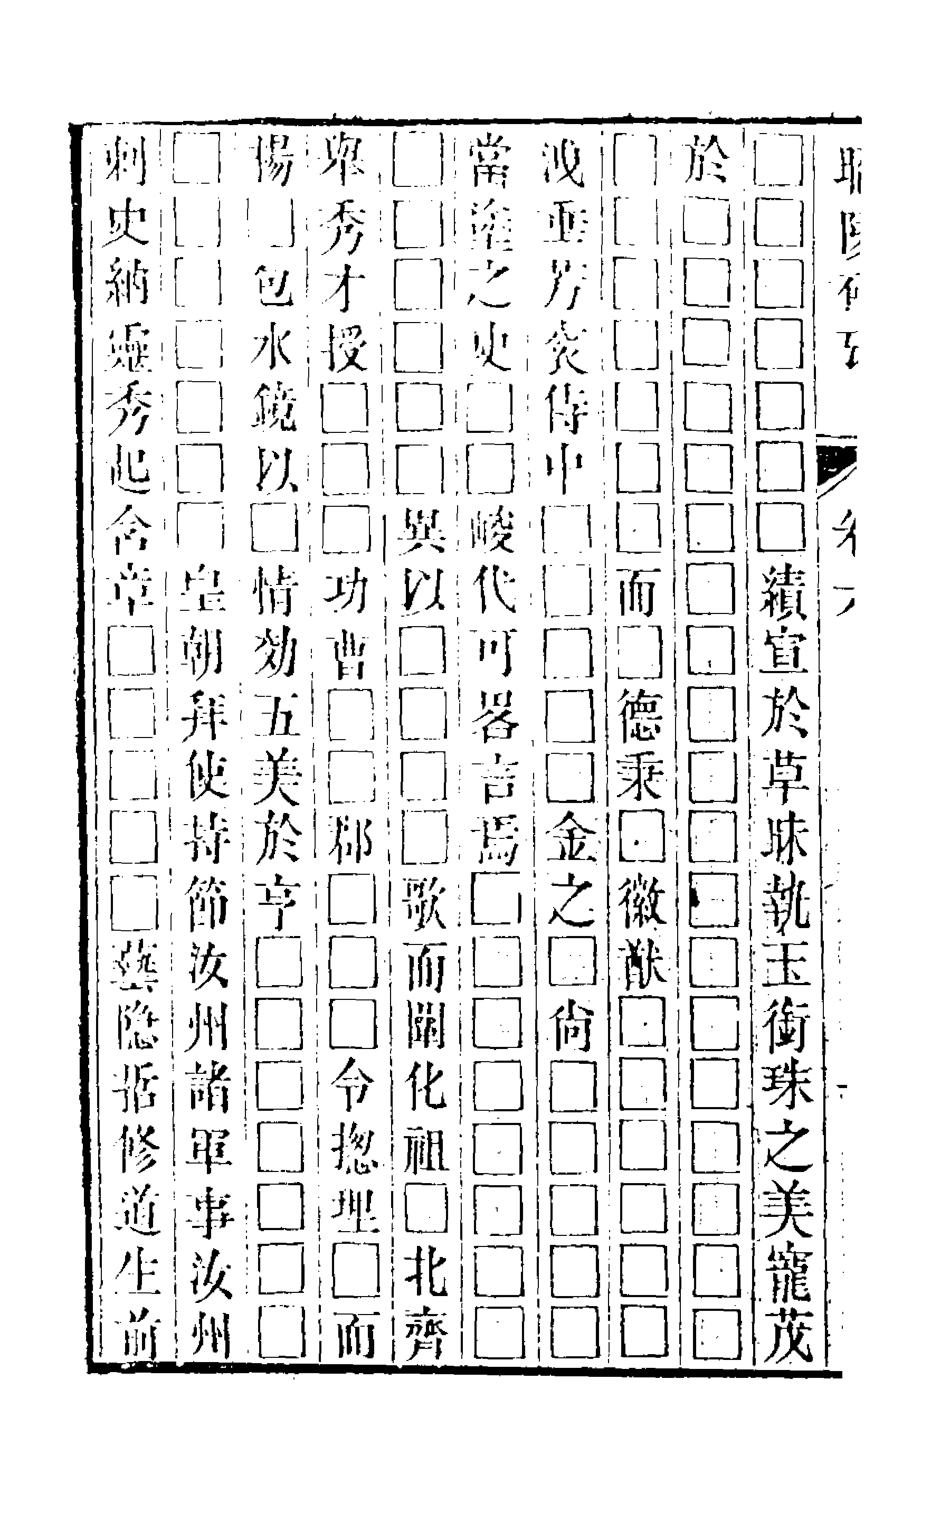 昭陵碑考 卷六
□□□□□□□績宣於草昧執玉銜珠之美寵茂
於□□□□□□□□□□□□□□□□□□□
□□□□□□□而□德秉□徽猷□□□□□□
洩垂芳衮侍中□□□□□金之□尙□□□□□
當塗之史□□峻代可器言焉□□□□□□□□
□□□□□□異以□□□□歌而闡化祖□北齊
舉秀才授□□□功曹□□郡□□□令揔理□而
□包水鏡以□情効五美於亨□□□□□□□
□□□□□□□皇朝拜使持節汝州諸軍事汝州
刺史納靈秀起含章□□□□□藝隐括修道生前